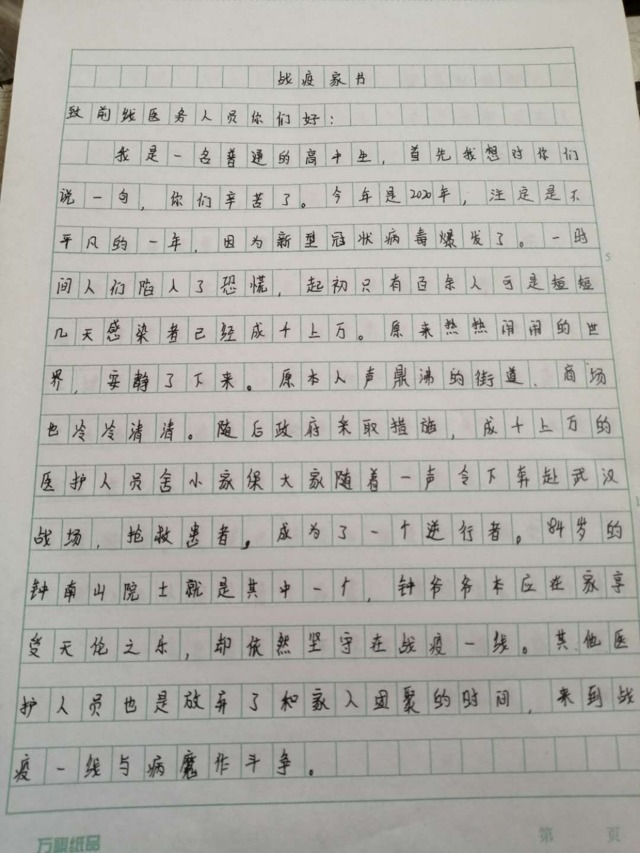 战疫家书
致前线医务人员你们好：
我是一名普通的高中生，首先我想对你们
说一句，你们辛苦了。今年是2020年，注定是不
平凡的一年，因为新型冠状病毒爆发了。一时
间人们陷人了恐慌，起初只有百余人可是短短
几天感染者已经成千上万。原来热热闹闹的世
界，安静了下来。原本人声鼎沸的街道、商场
也冷冷清清。随后政府采取措施，成千上万的
医护人员舍小家保大家随着一声令下奔赴武汉
战场，抢救患者，成为了一个逆行者。84岁的
钟南山院士就是其中一个，钟爷爷本应在家享
受天伦之乐，却依然坚守在战疫一线。其他医
护人员也是放弃了和家人团聚的时间，来到战
疫一线与病魔作斗争。
5
1
万碘纸品
第 页